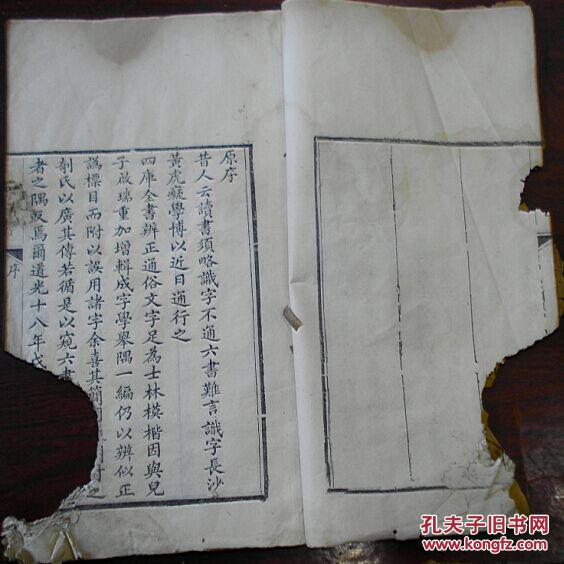 原序
昔人云讀書須略識字不通六書難言識字長沙
黃虎癡學博以近日通行之
四庫全書辨正通俗文字足為士林模楷因與兒
子啟瑞重加增輯成字學舉隅一編仍以辨似正
譌標目而附以誤用諸字余喜其簡
之
剞氏以廣其傳若循是以窺六書
者之隅反焉爾道光十八年戊
序
孔夫子旧书网
www.kongfz.com